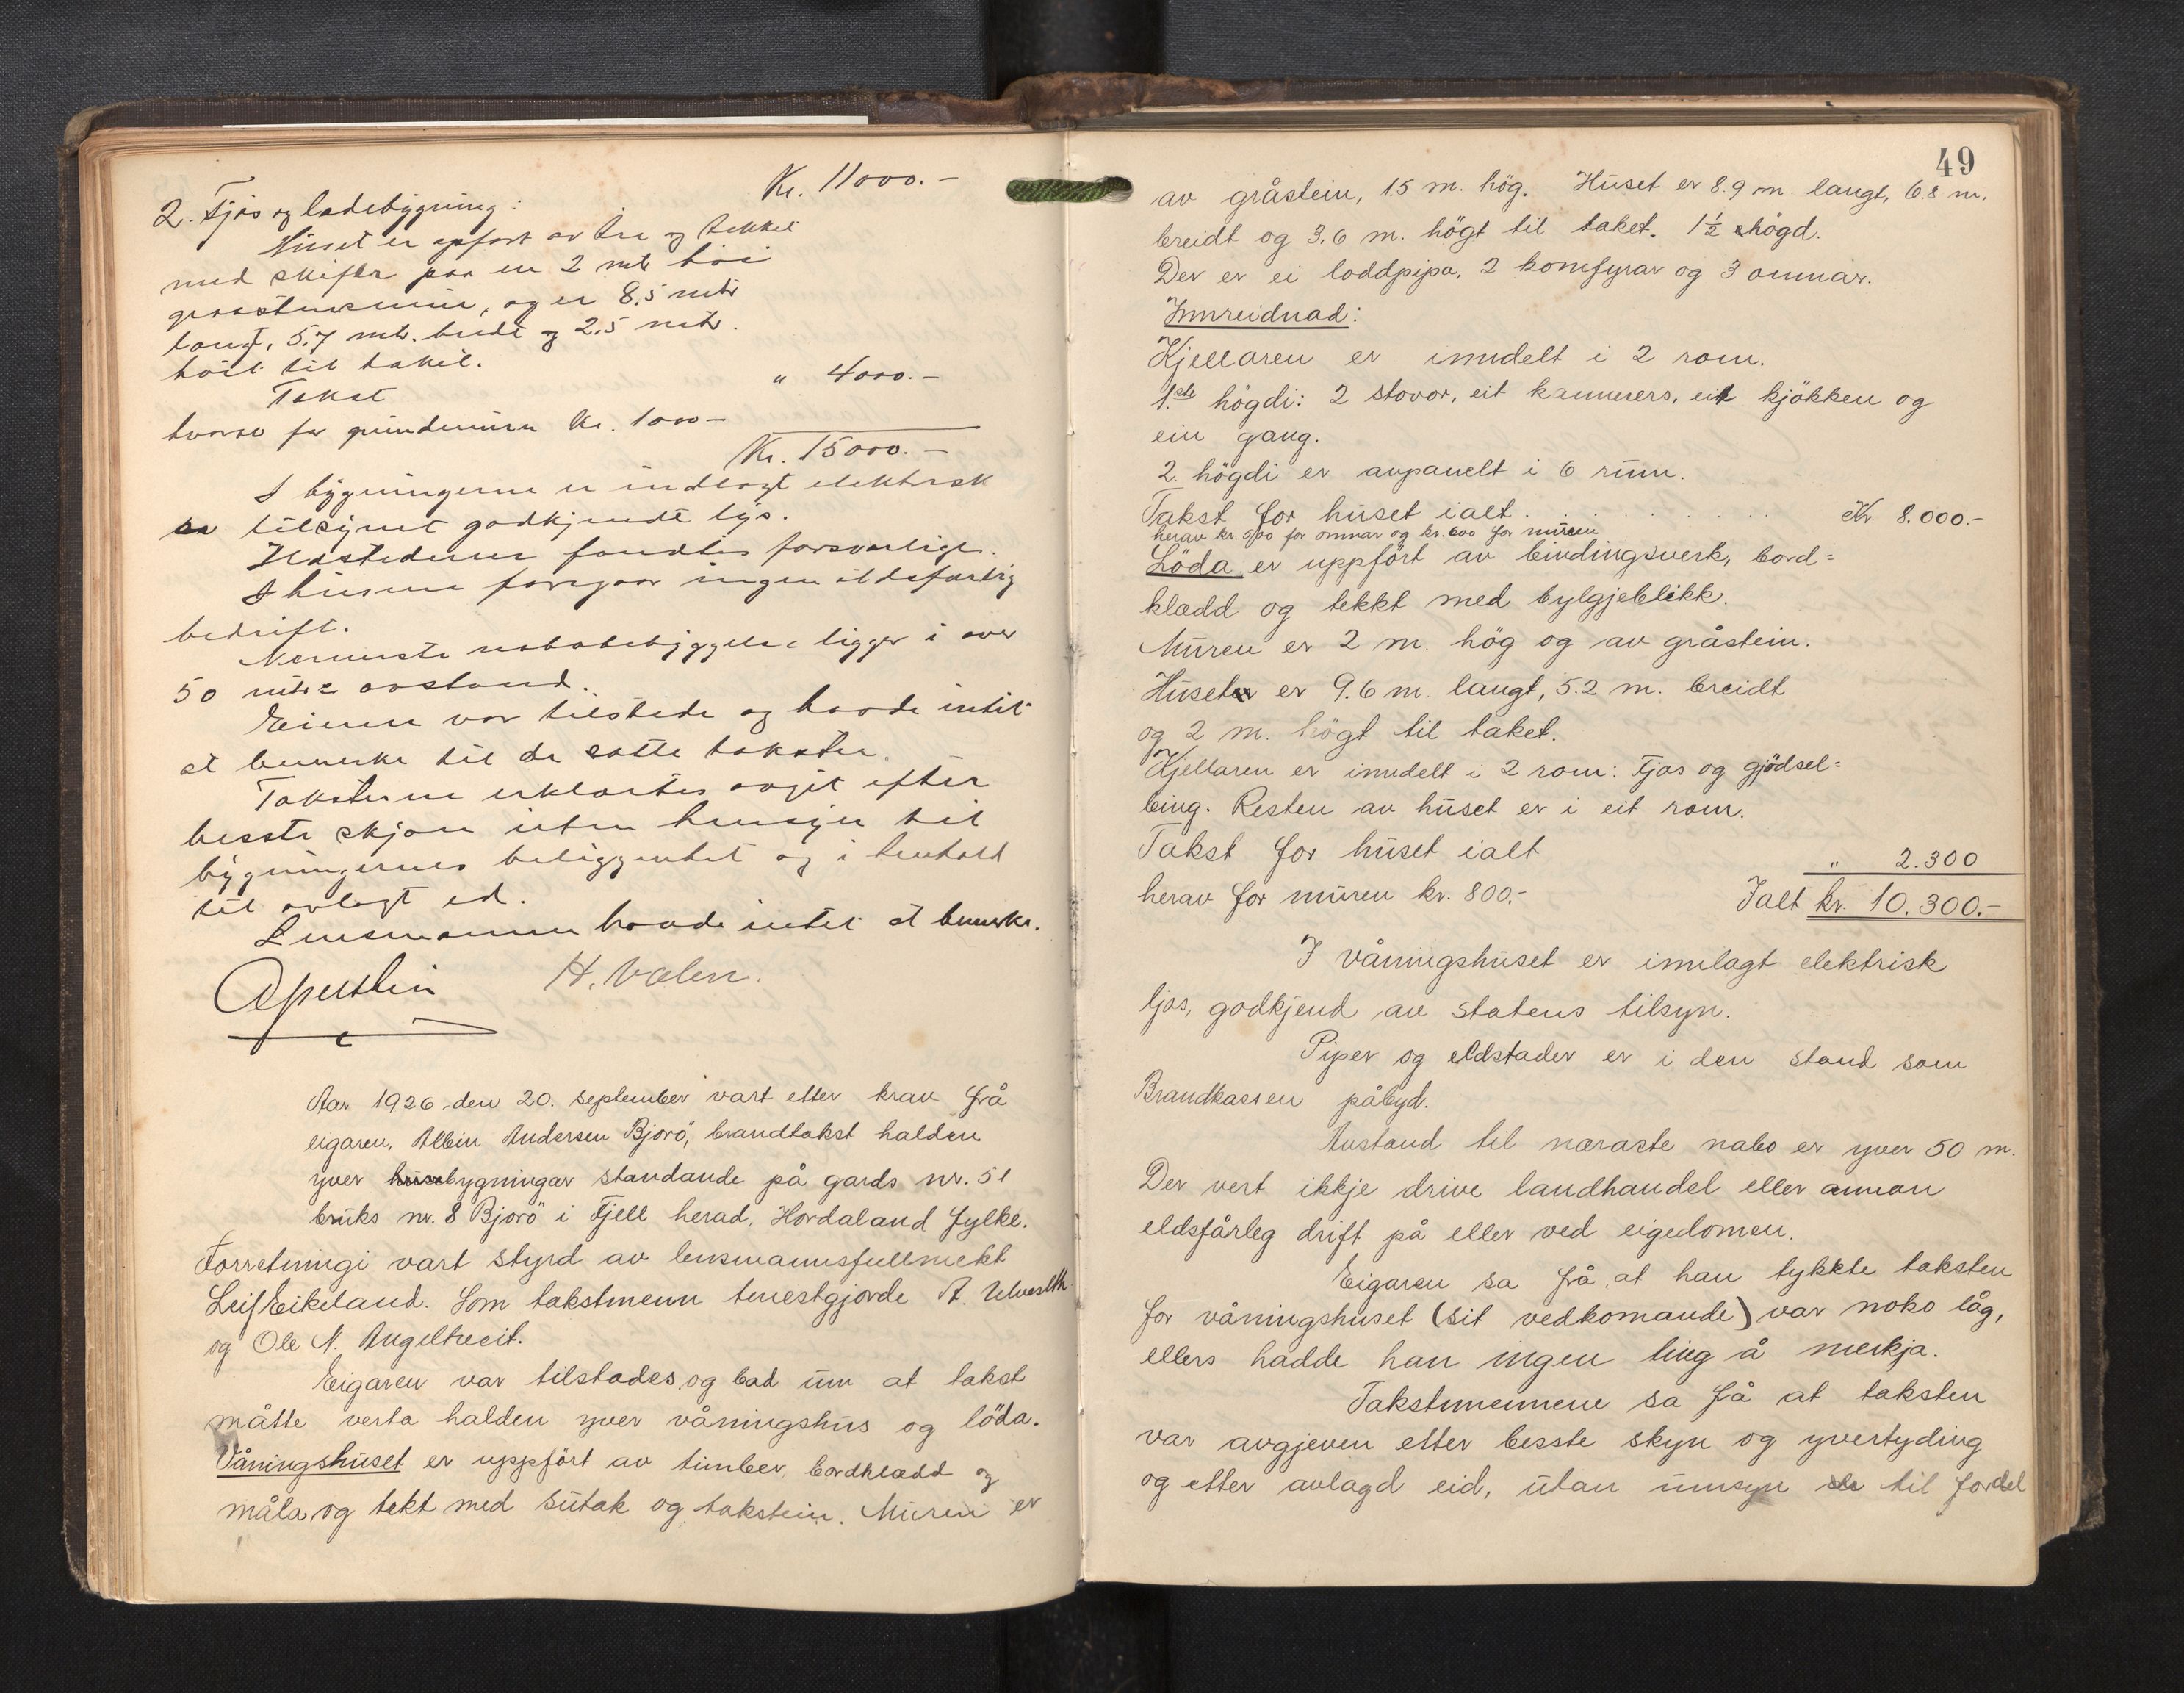 Kr. 11000.-
2. Fjøs og ladebygning:
Huset er opført av tre og tekket
med skifer paa en 2 mtr høi
graastensmur, og er 8.5 mtr
langt, 5.7 mtr. bredt og 2.5 mtr.
høit til taket.
Takst " 4000.-
hvorav for grundmuren kr. 1000-
Kr. 15000.-
I bygningerne er indlagt elektrisk
av tilsynet godkjendt lys.
Ildstederne fandtes forsvarlige.
I husene foregaar ingen ildsfarlig
bedrift.
Nærmeste nabobebyggelse ligger i over
50 mtrs avstand.
Eieren var tilstede og havde intet
at bemerke til de satte takster.
Taksterne erklærtes avgit efter
beste skjøn uten hensyn til
bygningernes beliggenhet og i henhold
til avlagt ed.
Lensmannen havde intet at bemerke.
H. Valen.
Aar 1926 den 20. september vart etter krav frå
eigaren, Albin Andersen Bjorö, brandtakst halden
yver husebygningar standande på gards nr. 51
bruks nr. 8 Bjorö i Fjell herad, Hordaland fylke.
Forretningi vart styrd av lensmannsfullmekt
Leif Eikeland. Som takstmenn tenestgjorde A. Ulveseth
og Ole N. Angeltveit.
Eigaren var tilstades og bad um at takst
måtte verta halden yver våningshus og löda.
Våningshuset er uppfört av timber, bordklædd og
måla og tekt med sutak og takstein. Muren er
49
av gråstein, 1.5 m. hög. Huset er 8.9 m. langt, 6.8 m.
breidt og 3.6 m. högt til taket. 1½ högd.
Der er ei loddpipa, 2 komfyrar og 3 omnar.
Innreidnad:
Kjellaren er inndelt i 2 rom.
1ste högdi: 2 stovor, eit kammers, eit kjökken og
ein gang.
2. högdi er avpanelt i 6 rum.
Takst for huset ialt . . . . . . . . Kr 8.000.-
herav kr. 500 for omnar og kr. 600 for muren
Löda er uppfört av bindingsverk, bord=
klædd og tekkt med bylgjeblikk.
Muren er 2 m. hög og av gråstein.
Huset er 9.6 m. langt, 5.2 m. breidt
og 2 m. högt til taket.
Kjellaren er inndelt i 2 rom: Fjos og gjödsel=
bing. Resten av huset er i eit rom.
Takst for huset ialt " 2.300
herav for muren kr. 800.- Ialt kr. 10.300.-
I våningshuset er innlagt elektrisk
ljos, godkjend av statens tilsyn.
Piper og eldstader er i den stand som
Brandkassen påbyd.
Avstand til næraste nabo er yver 50 m.
Der vert ikkje drive landhandel eller annan
eldsfårleg drift på eller ved eigedomen.
Eigaren sa frå at han tykkte taksten
for våningshuset (sit vedkomande) var noko låg,
ellers hadde han ingen ting å merkja.
Takstmennene sa få at taksten
var avgjeven etter besste skyn og yvertyding
og etter avlagd eid, utan umsyn til fordel